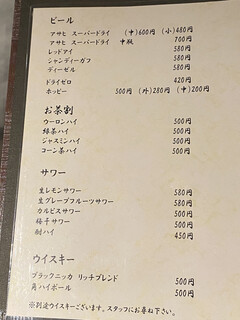 ビール
アサヒ スーパードライ (中)600円 (小)480円
アサヒ スーパードライ 中瓶 700円
レッドアイ 580円
シャンディーガフ 580円
ディーゼル 580円
ドライゼロ 420円
ホッピー 500円 (外)280円 (中)200円
お茶割
ウーロンハイ 500円
緑茶ハイ 500円
ジャスミンハイ 500円
コーン茶ハイ 500円
サワー
生レモンサワー 580円
生グレープフルーツサワー 580円
カルピスサワー 500円
梅干サワー 500円
酎ハイ 450円
ウイスキー
ブラックニッカ リッチブレンド 500円
角ハイボール 500円
※別途ウイスキーございます。スタッフにお尋ね下さい。